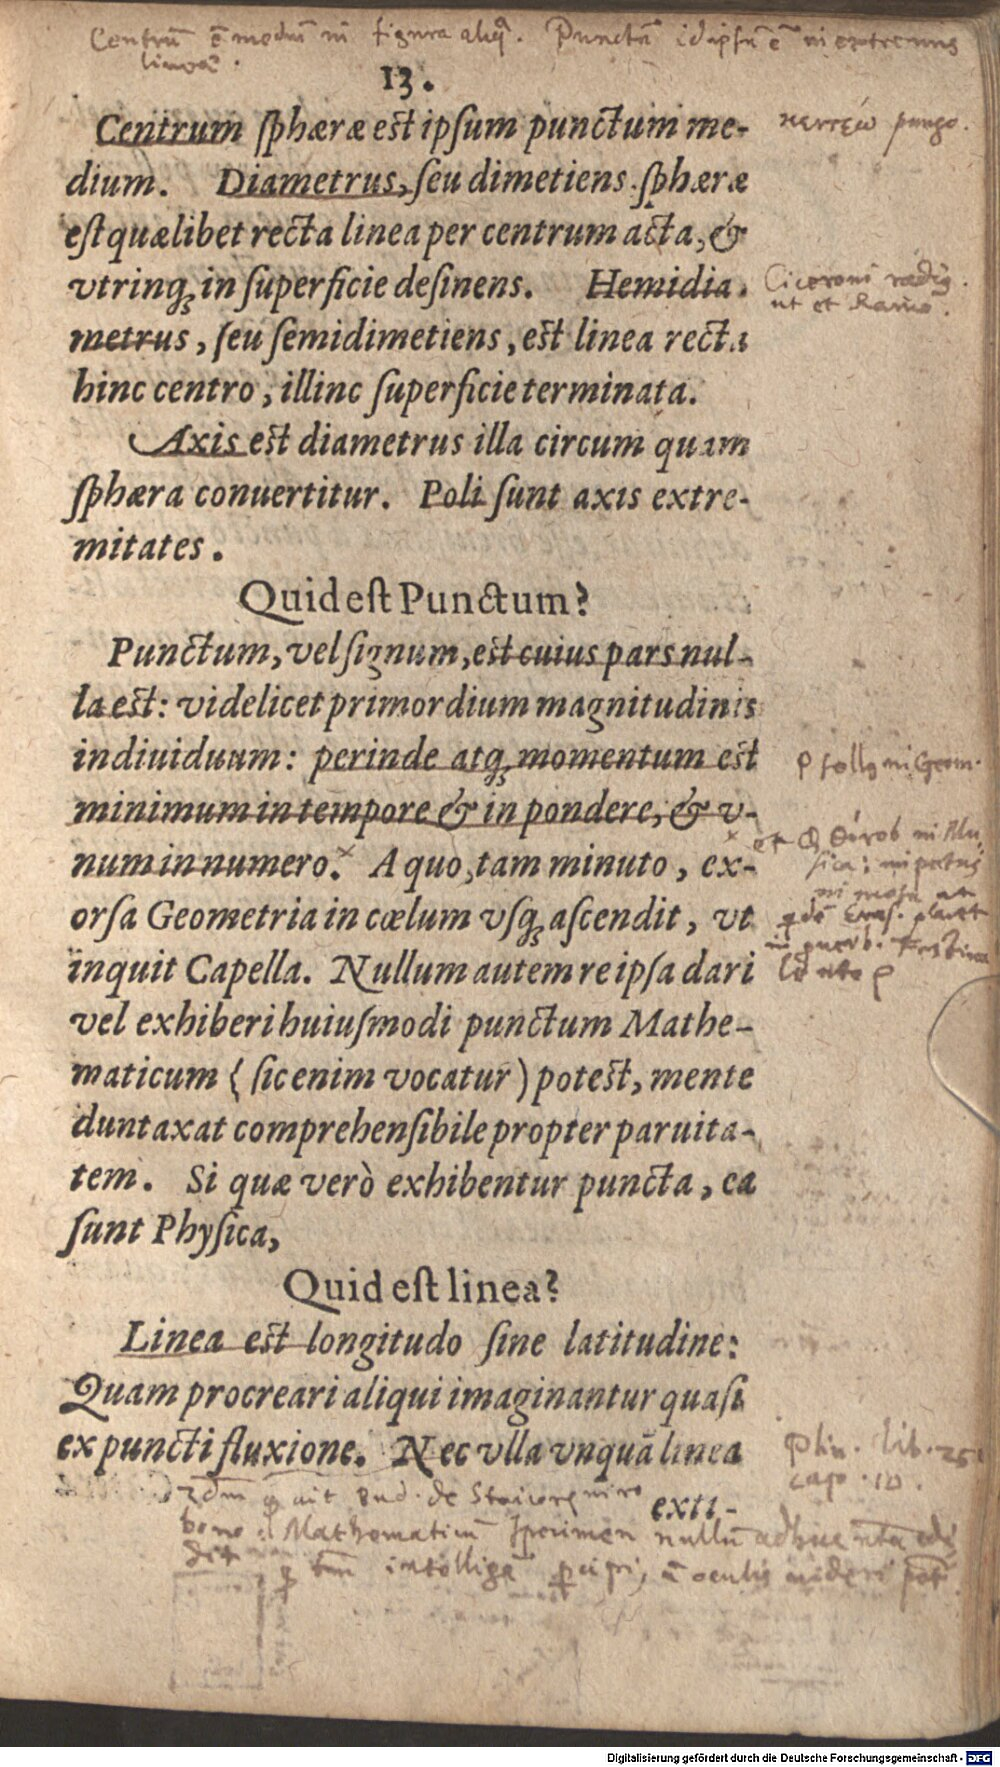 Centrum ē medium in figura aliqa. Punctū id ipsū ē in extremis
lineae.
13.
Centrum ſphæræ eſt ipſum punctum me-
dium. Diametrus, ſeu dimetiens ſphæræ
eſt quælibet recta linea per centrum acta, &
vtrinq; in ſuperficie deſinens. Hemidia-
metrus, ſeu ſemidimetiens, eſt linea recta
hinc centro, illinc ſuperficie terminata.
Axis eſt diametrus illa circum quam
ſphæra conuertitur. Poli ſunt axis extre-
mitates.
Quid eſt Punctum?
Punctum, vel ſignum, eſt cuius pars nul-
la eſt: videlicet primordium magnitudinis
indiuiduum: perinde atq; momentum eſt
minimum in tempore & in pondere, & v-
num in numero. A quo, tam minuto, ex-
orſa Geometria in cœlum vſq; aſcendit, vt
inquit Capella. Nullum autem re ipſa dari
vel exhiberi huiuſmodi punctum Mathe-
maticum (ſic enim vocatur) poteſt, mente
duntaxat comprehenſibile propter paruita-
tem. Si quæ verò exhibentur puncta, ea
ſunt Phyſica,
Quid eſt linea?
Linea eſt longitudo ſine latitudine:
Quam procreari aliqui imaginantur quaſi
ex puncti fluxione. Nec vlla vnquā linea
exti-
κεντέω pungo.
Ciceroni radiq
ut et Ramo.
Geom.
Plin. lib. 25
cap. 10.
ait Bud. de
Mathematicū specimen nullū adhuc
oculis uideri
Digitalisierung gefördert durch die Deutsche Forschungsgemeinschaft - DFG